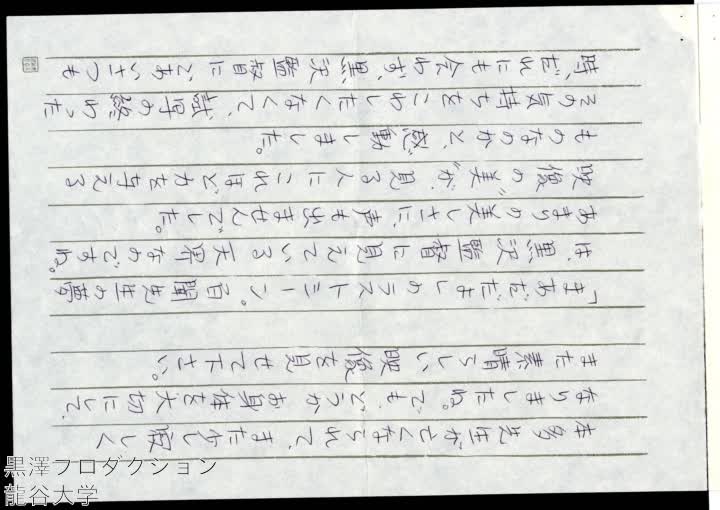 本多先生が亡くなられて、また少し寂しく
なりましたね。でも、どうか お身体を大切にして、
また素晴らしい映像を見せて下さい。
「まあだだよ」のラストシーン。百閒先生の夢
は、黒沢監督に見えている天界なのですね。
あまりの美しさに、声も出ませんでした。
映像の“美”が、見る人に これほど力を与える
ものなのかと、感動しました。
その気持ちをこわしたくなくて、試写の終わった
時、だれにも会わず、黒沢監督に ごあいさつも
黒澤プロダクション
龍谷大学